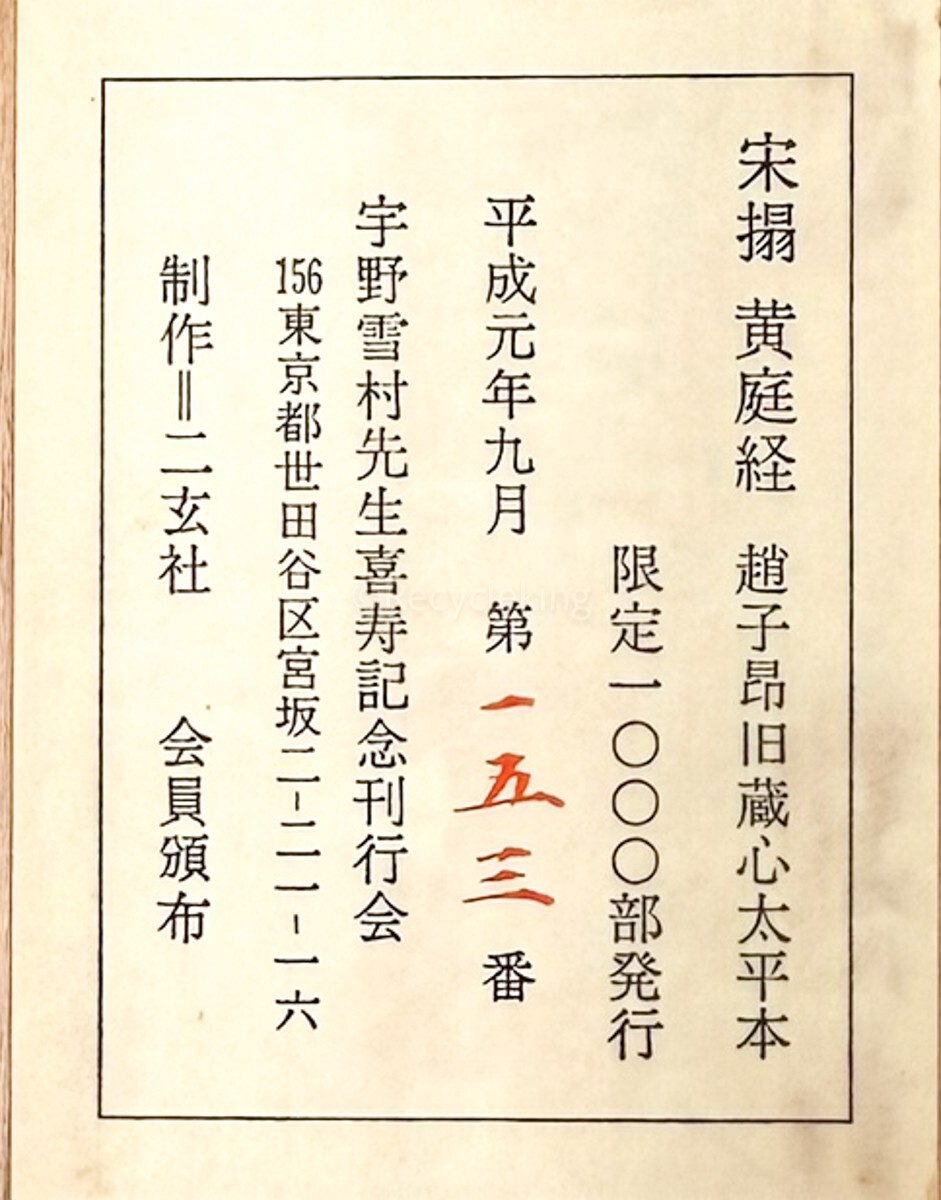 宋搨 黄庭経 趙子昂旧蔵心太平本
限定一〇〇〇部発行
平成元年九月 第一五三番
宇野雪村先生喜寿記念刊行会
156東京都世田谷区宮坂二-二一-一六
制作=二玄社 会員頒布
©Recycleking